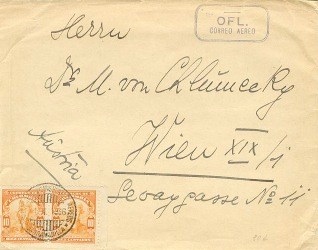 OFL.
CORREO AEREO
Herrn
Dr. M. von Chlumecky
Austria
Wien XIX/1
Levaygasse No 11
10
10